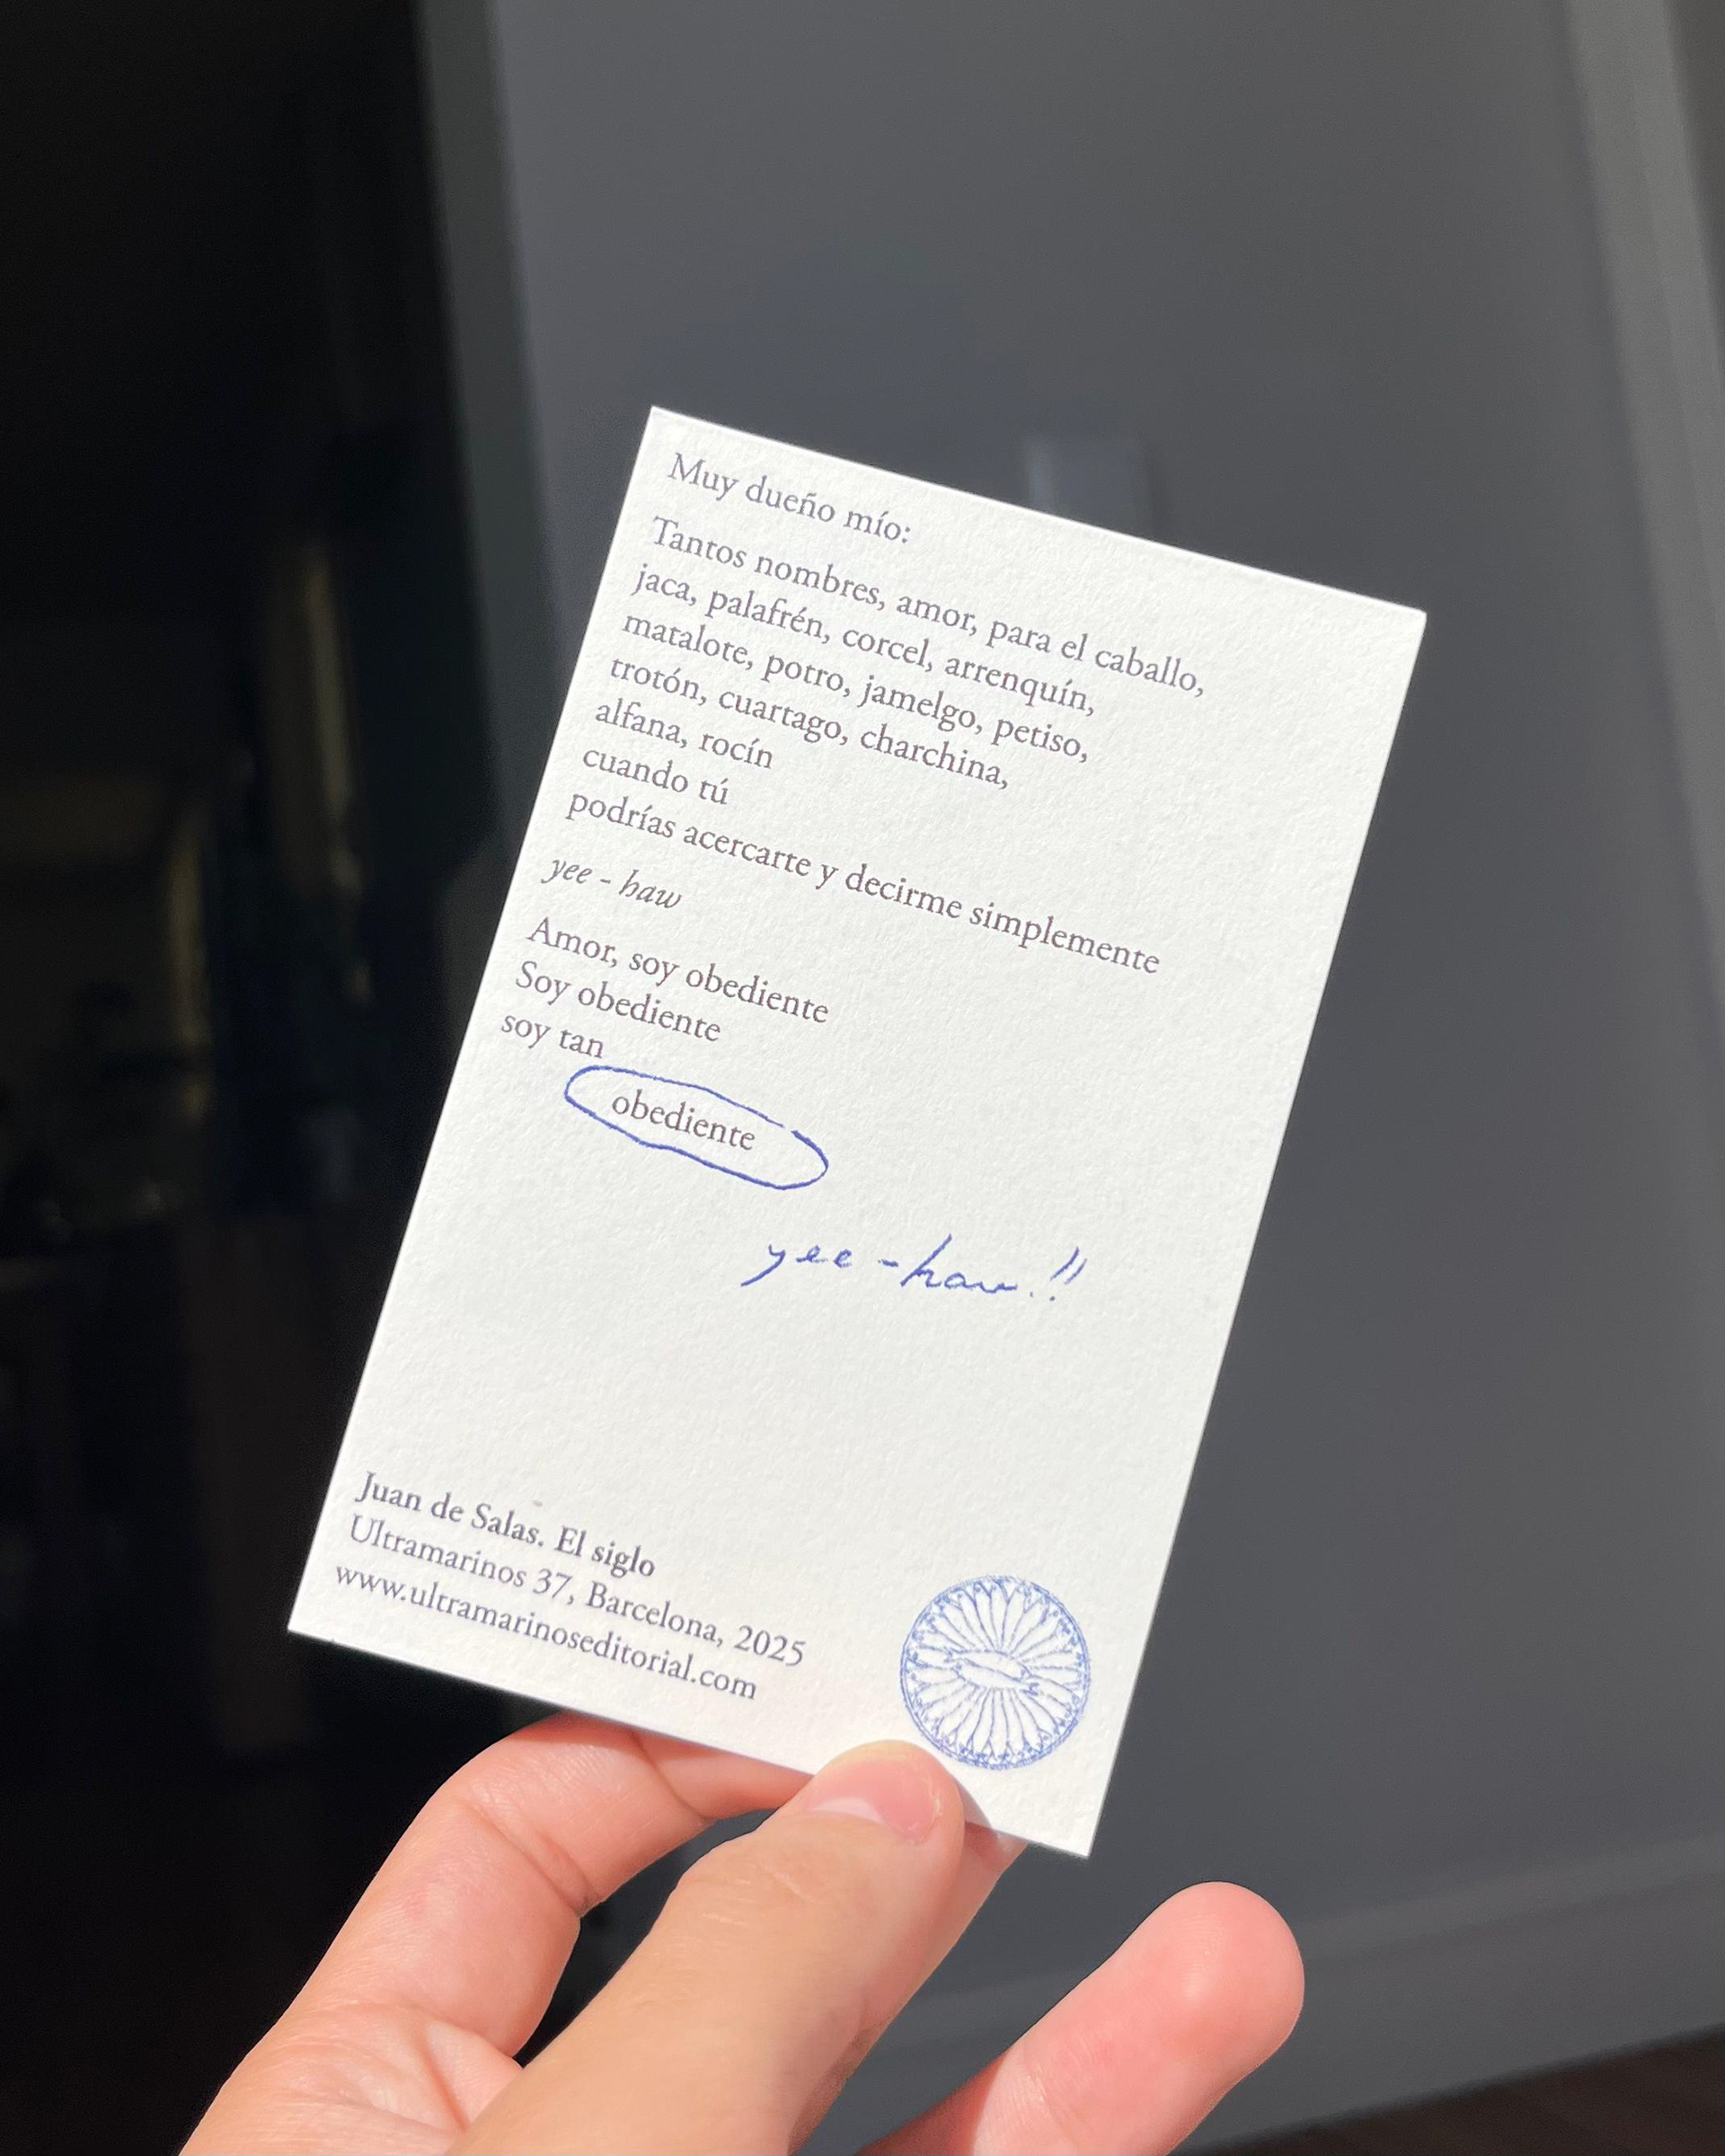 Muy dueño mío:
Tantos nombres, amor, para el caballo,
jaca, palafrén, corcel, arrenquín,
matalote, potro, jamelgo, petiso,
trotón, cuartago, charchina,
alfana, rocín
cuando tú
podrías acercarte y decirme simplemente
yee - haw
Amor, soy obediente
Soy obediente
soy tan
obediente
yee - haw!!
Juan de Salas. El siglo
Ultramarinos 37, Barcelona, 2025
www.ultramarinoseditorial.com